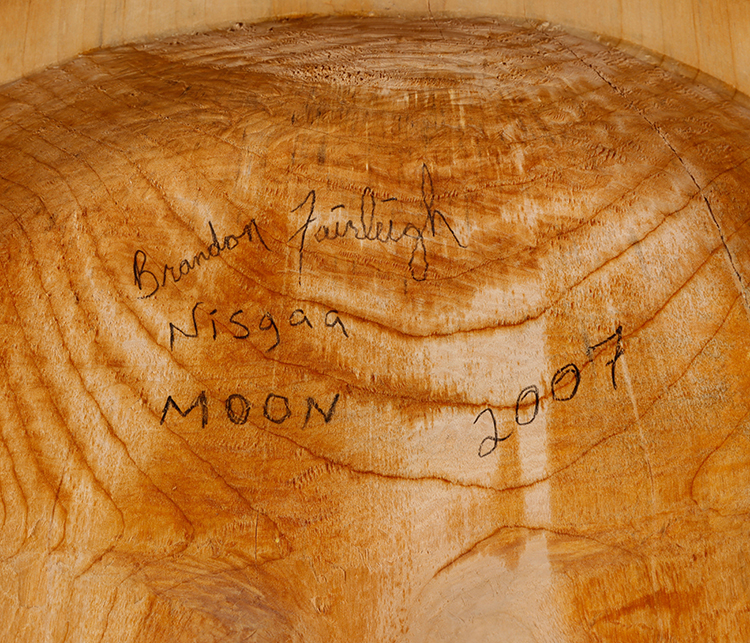 Brandon Fairleigh
Nisgaa
MOON 2007